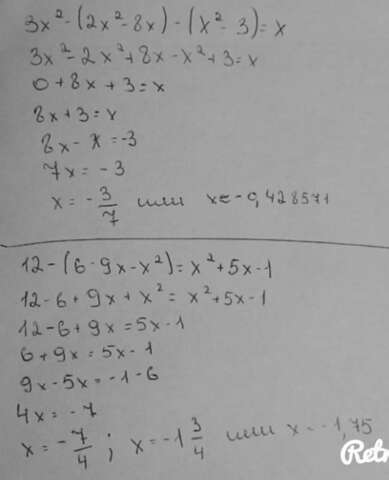 3x² - (2x² - 8x) - (x² - 3) = x
3x² - 2x² + 8x - x² + 3 = x
0 + 8x + 3 = x
8x + 3 = x
8x - x = -3
7x = -3
x = -3/7 или x ≈ -0,428571
12 - (6 - 9x - x²) = x² + 5x - 1
12 - 6 + 9x + x² = x² + 5x - 1
12 - 6 + 9x = 5x - 1
6 + 9x = 5x - 1
9x - 5x = -1 - 6
4x = -7
x = -7/4 ; x = -1 3/4 или x = -1,75
Retr